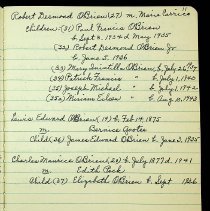 11
Robert Desmond O'Brien (27) m. Marie Carrico
Children:-(31) Paul Francis O'Brien
b Sept 8, 1934 d. May, 1955
(32) Robert Desmond O'Brien Jr
b June 5, 1936
(33) Mary O'Brien b. July 26,
(34) Patrick Francis " b. July 1, 1940
(35) Joseph Michael " b. July 1, 194
(35a) Miriam Eileen " b. Aug 10, 1943
Lewis Edward O'Brien (19) b. Feb 14, 1875
m. Bernice Coates
Child (36) James Edward O'Brien b. June 3, 1855
Charles Maurice O'Brien (28) b. July 1877 d. 1941
m. Edith Peck
Child (37) Elizabeth O'Brien b. Sept 1866